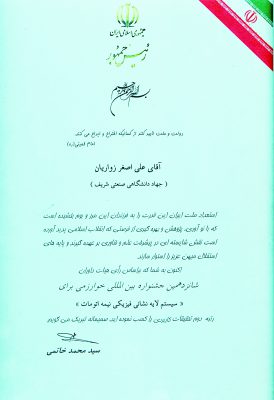 جمهوری اسلامی ایران
رئیس جمهور
بسم الله الرحمن الرحیم
دولت و ملت تأیید کنند از کسانیکه اختراع و ابداع می کنند.
آقای علی اصغر زواریان
( جهاد دانشگاهی صنعتی شریف )
استعداد ملت ایران این قدرت را به فرزندان این مرز و بوم بخشیده است
که با نو آوری، پژوهش و بهره گیری از فرصتی که انقلاب اسلامی پدید آورده
است نقش شایسته ای در پیشرفت علم و فناوری بر عهده گیرند و پایه های
استقلال میهن عزیز را استوار سازند.
اکنون به شما که براساس رأی هیأت داوران
شانزدهمین جشنواره بین المللی خوارزمی برای
« سیستم لایه نشانی فیزیکی نیمه اتومات »
رتبه دوم تحقیقات کاربردی را کسب نموده اید صمیمانه تبریک می گویم.
سید محمد خاتمی